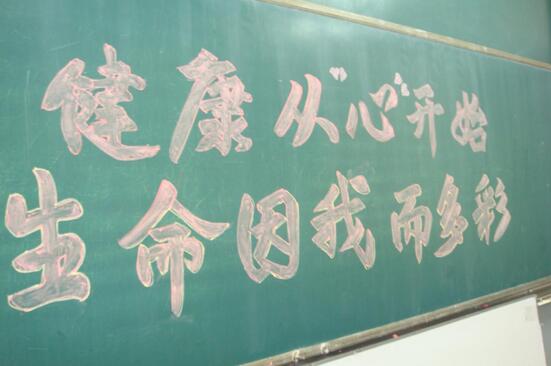 健康从“心”开始
生命因我而多彩